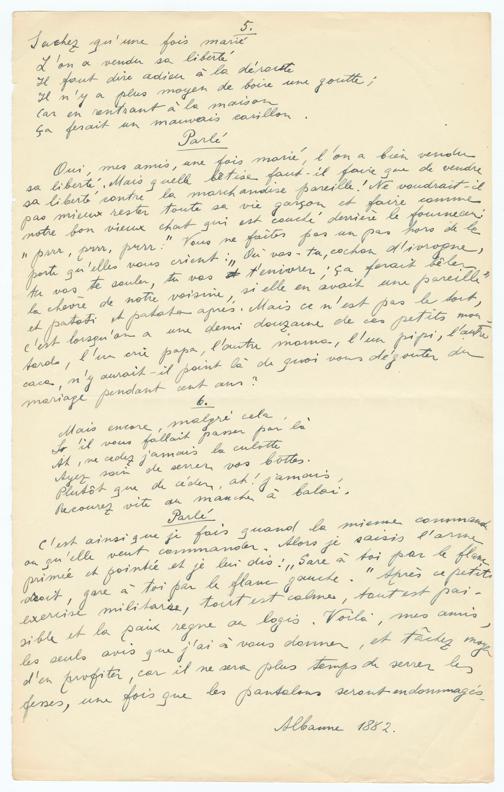 5.
Sachez qu'une fois marié
L'on a vendu sa liberté
Il faut dire adieu à la déroute
Il n'y a plus moyen de boire une goutte ;
Car en rentrant à la maison
Ça ferait un mauvais carillon.
Parlé
Oui, mes amis, une fois marié, l'on a bien vendu
sa liberté. Mais quelle bêtise faut-il faire que de vendre
sa liberté contre la marchandise pareille ! Ne vaudrait-il
pas mieux rester toute sa vie garçon et faire comme
notre bon vieux chat qui est couché derrière le fourneau :
"prrr, prrr, prrr !" Vous ne faites pas un pas hors de la
porte qu'elles vous crient : "Où vas-tu, cochon d'ivrogne,
tu vas te saouler, tu vas t'enivrer ; ça ferait bêler
la chèvre de notre voisine, si elle en avait une pareille"
et patati et patata après. Mais ce n'est pas le tout,
c'est lorsqu'on a une demi douzaine de ces petits mou-
tards, l'un crie papa, l'autre mama, l'un pipi, l'autre
caca, n'y aurait-il point là de quoi vous dégouter du
mariage pendant cent ans ?
6.
Mais encore, malgré cela,
S'il vous fallait passer par là
Ah, ne cedez jamais la culotte
Ayez soin de serrer vos bottes.
Plutôt que de céder, ah ! jamais,
Recourez vite au manche à balai.
Parlé
C'est ainsi que je fais quand la mienne commande
ou qu'elle veut commander. Alors je saisis l'arme
et pointée et je lui dis : "Gare à toi par le flanc
droit, gare à toi par le flanc gauche." Après ce petit
exercise militaire, tout est calme, tout est pai-
sible et la paix regne au logis. Voilà, mes amis,
les seuls avis que j'ai à vous donner, et tâchez
d'en profiter, car il ne sera plus temps de serrer les
fesses, une fois que les pantalons seront endommagés.
Albanne 1882.